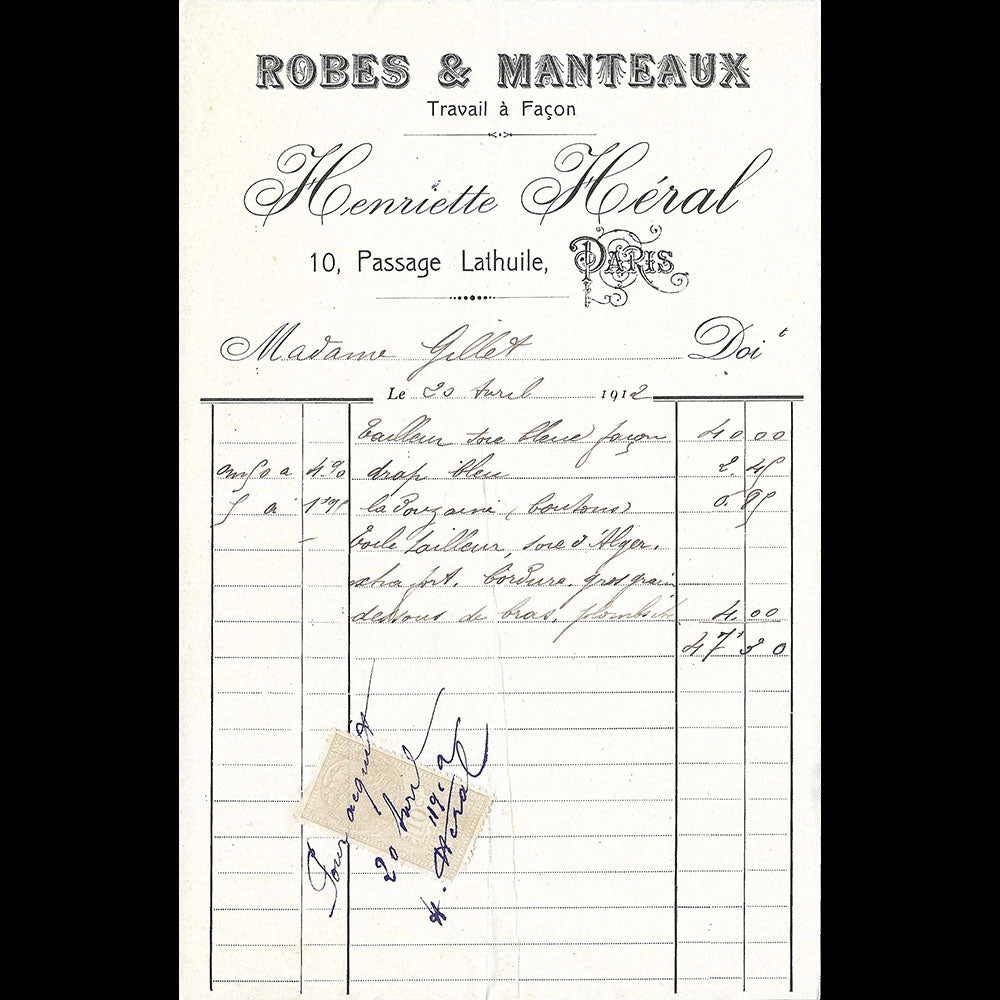 ROBES & MANTEAUX
Travail à Façon
Henriette Héral
10, Passage Lathuile, PARIS
Madame Gillet Doit
Le 20 Avril 1912
Tailleur soie bleue façon 40 00
0m50 à 4,90 drap bleu 2.45
5 à 1,95 la Douzaine (boutons) 0.85
Toile tailleur, soie d'Alger.
extra fort, bordure, gros grain
dessous de bras, 4.00
47,30
Pour acquit
20 Avril
1912
H. Héral